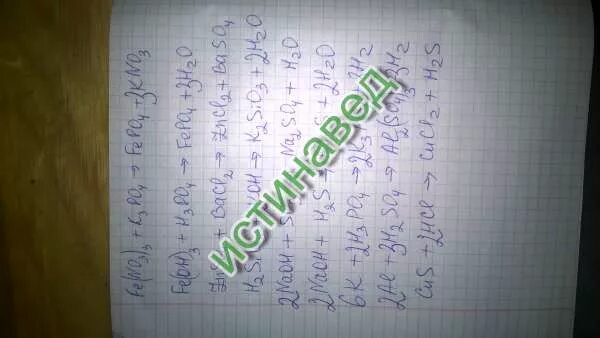 Fe(NO3)3 + K3PO4 → FePO4 + 3KNO3
Fe(OH)3 + H3PO4 → FePO4 + 3H2O
+ BaCl2 → ZnCl2 + BaSO4
→ K2SiO3 + 2H2O
2NaOH + Na2SO4 + H2O
2NaOH + H2S + 2H2O
6K + 2H3PO4 → 3H2
2Al + 3H2SO4 → Al2(SO4)3 3H2
CuS + 2HCl → CuCl2 + H2S
ИСТИНАВЕД